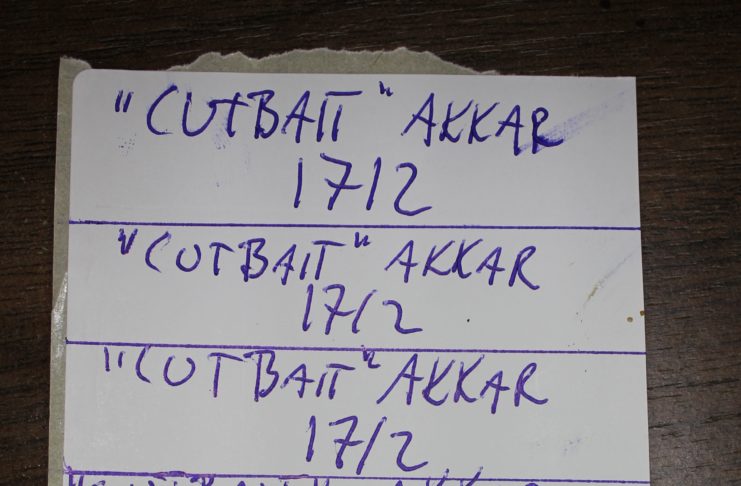 "CUTBAIT" AKKAR
17/2
"CUTBAIT" AKKAR
17/2
"CUTBAIT" AKKAR
17/2